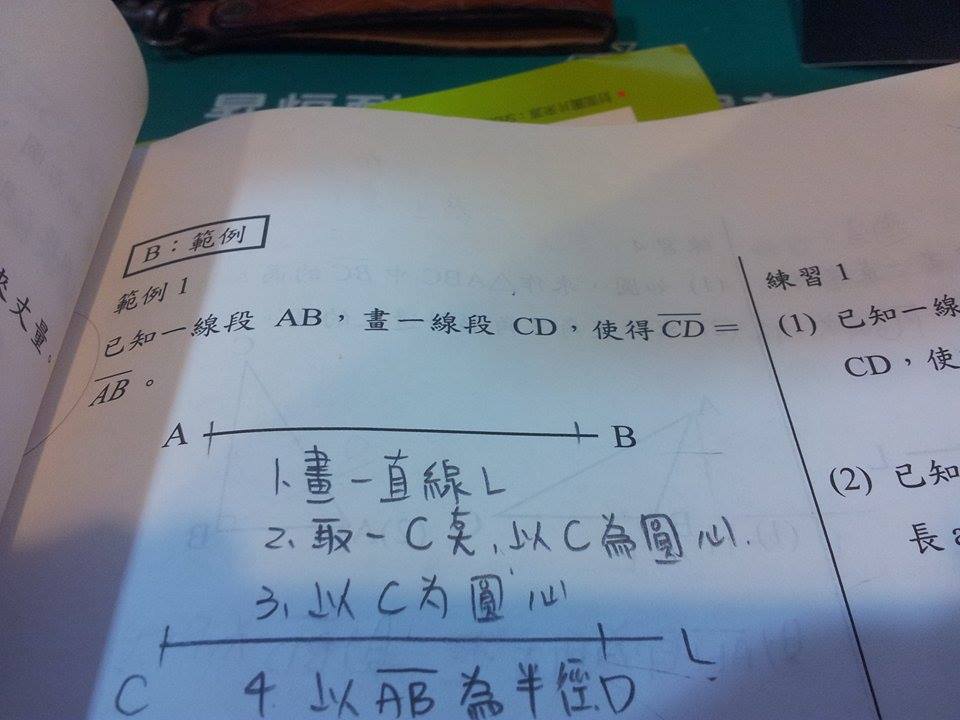 B：範例
範例 1
已知一線段 AB，畫一線段 CD，使得 CD =
AB。
A B
1.畫一直線L
2.取一C點,以C為圓心.
3.以C为圓心
L
C
4.以AB為半徑
D
練習 1
(1) 已知一線
CD，使
(2) 已知
長 a
丈量。